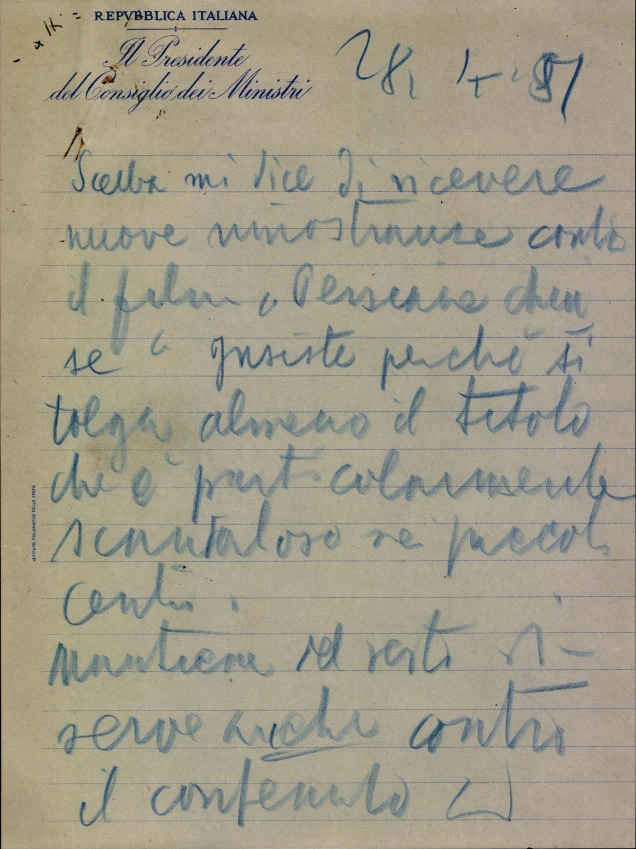 REPVBBLICA ITALIANA
Il Presidente
del Consiglio dei Ministri
28, 4. 51
Scelba mi dice di ricevere
nuove rimostranze contro
il film „ Persiane chiu
se “ Insiste perché si
tolga almeno il titolo
che è particolarmente
scandaloso nei piccoli
centri.
Mantiene del resto ri-
serve anche contro
il contenuto